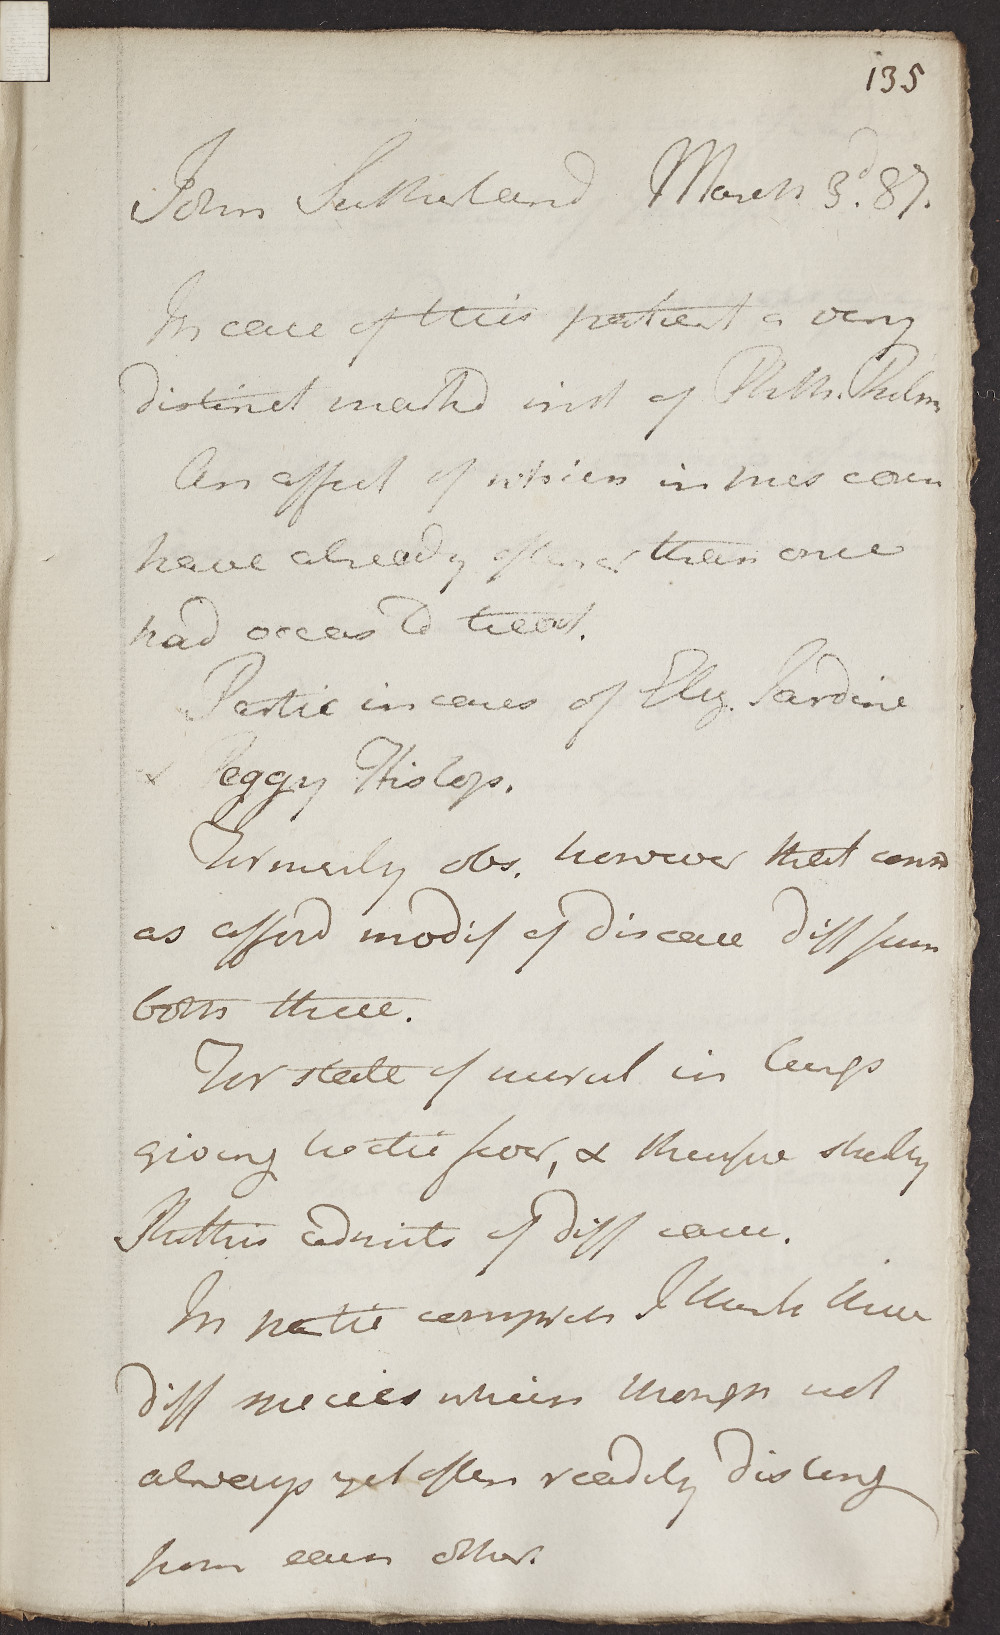 135
John Sutherland March 3d. 87.
In case of this patient a very
distinct markd inst of Phth. Pulm
An affect of which in this
have already oftener than once
had occas to treat.
Partic in cases of Eliz. Jardine
& Peggy Hislop.
Formerly obs. however that consd
as afford modif of disease diff from
both these.
For state of in lungs
giving hectic fever, & therefore strictly
Phthis admits of diff caus.
In patic I think three
diff species which though not
always yet often readily disting
from each other.